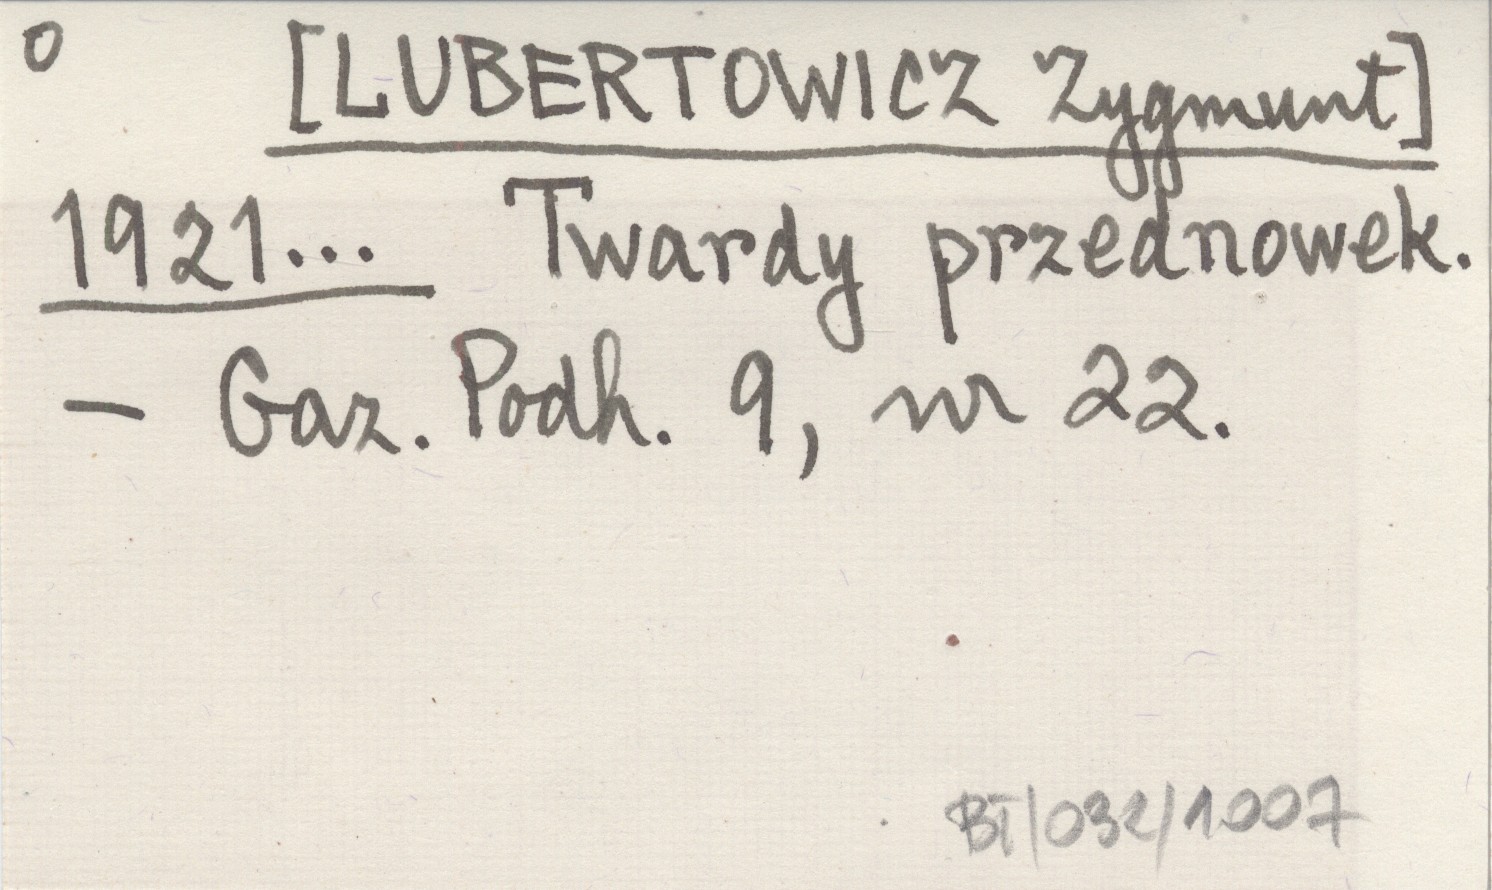 o [LUBERTOWICZ Zygmunt]
1921... Twardy przednowek.
- Gaz. Podh. 9, nr 22.
BT/032/1007